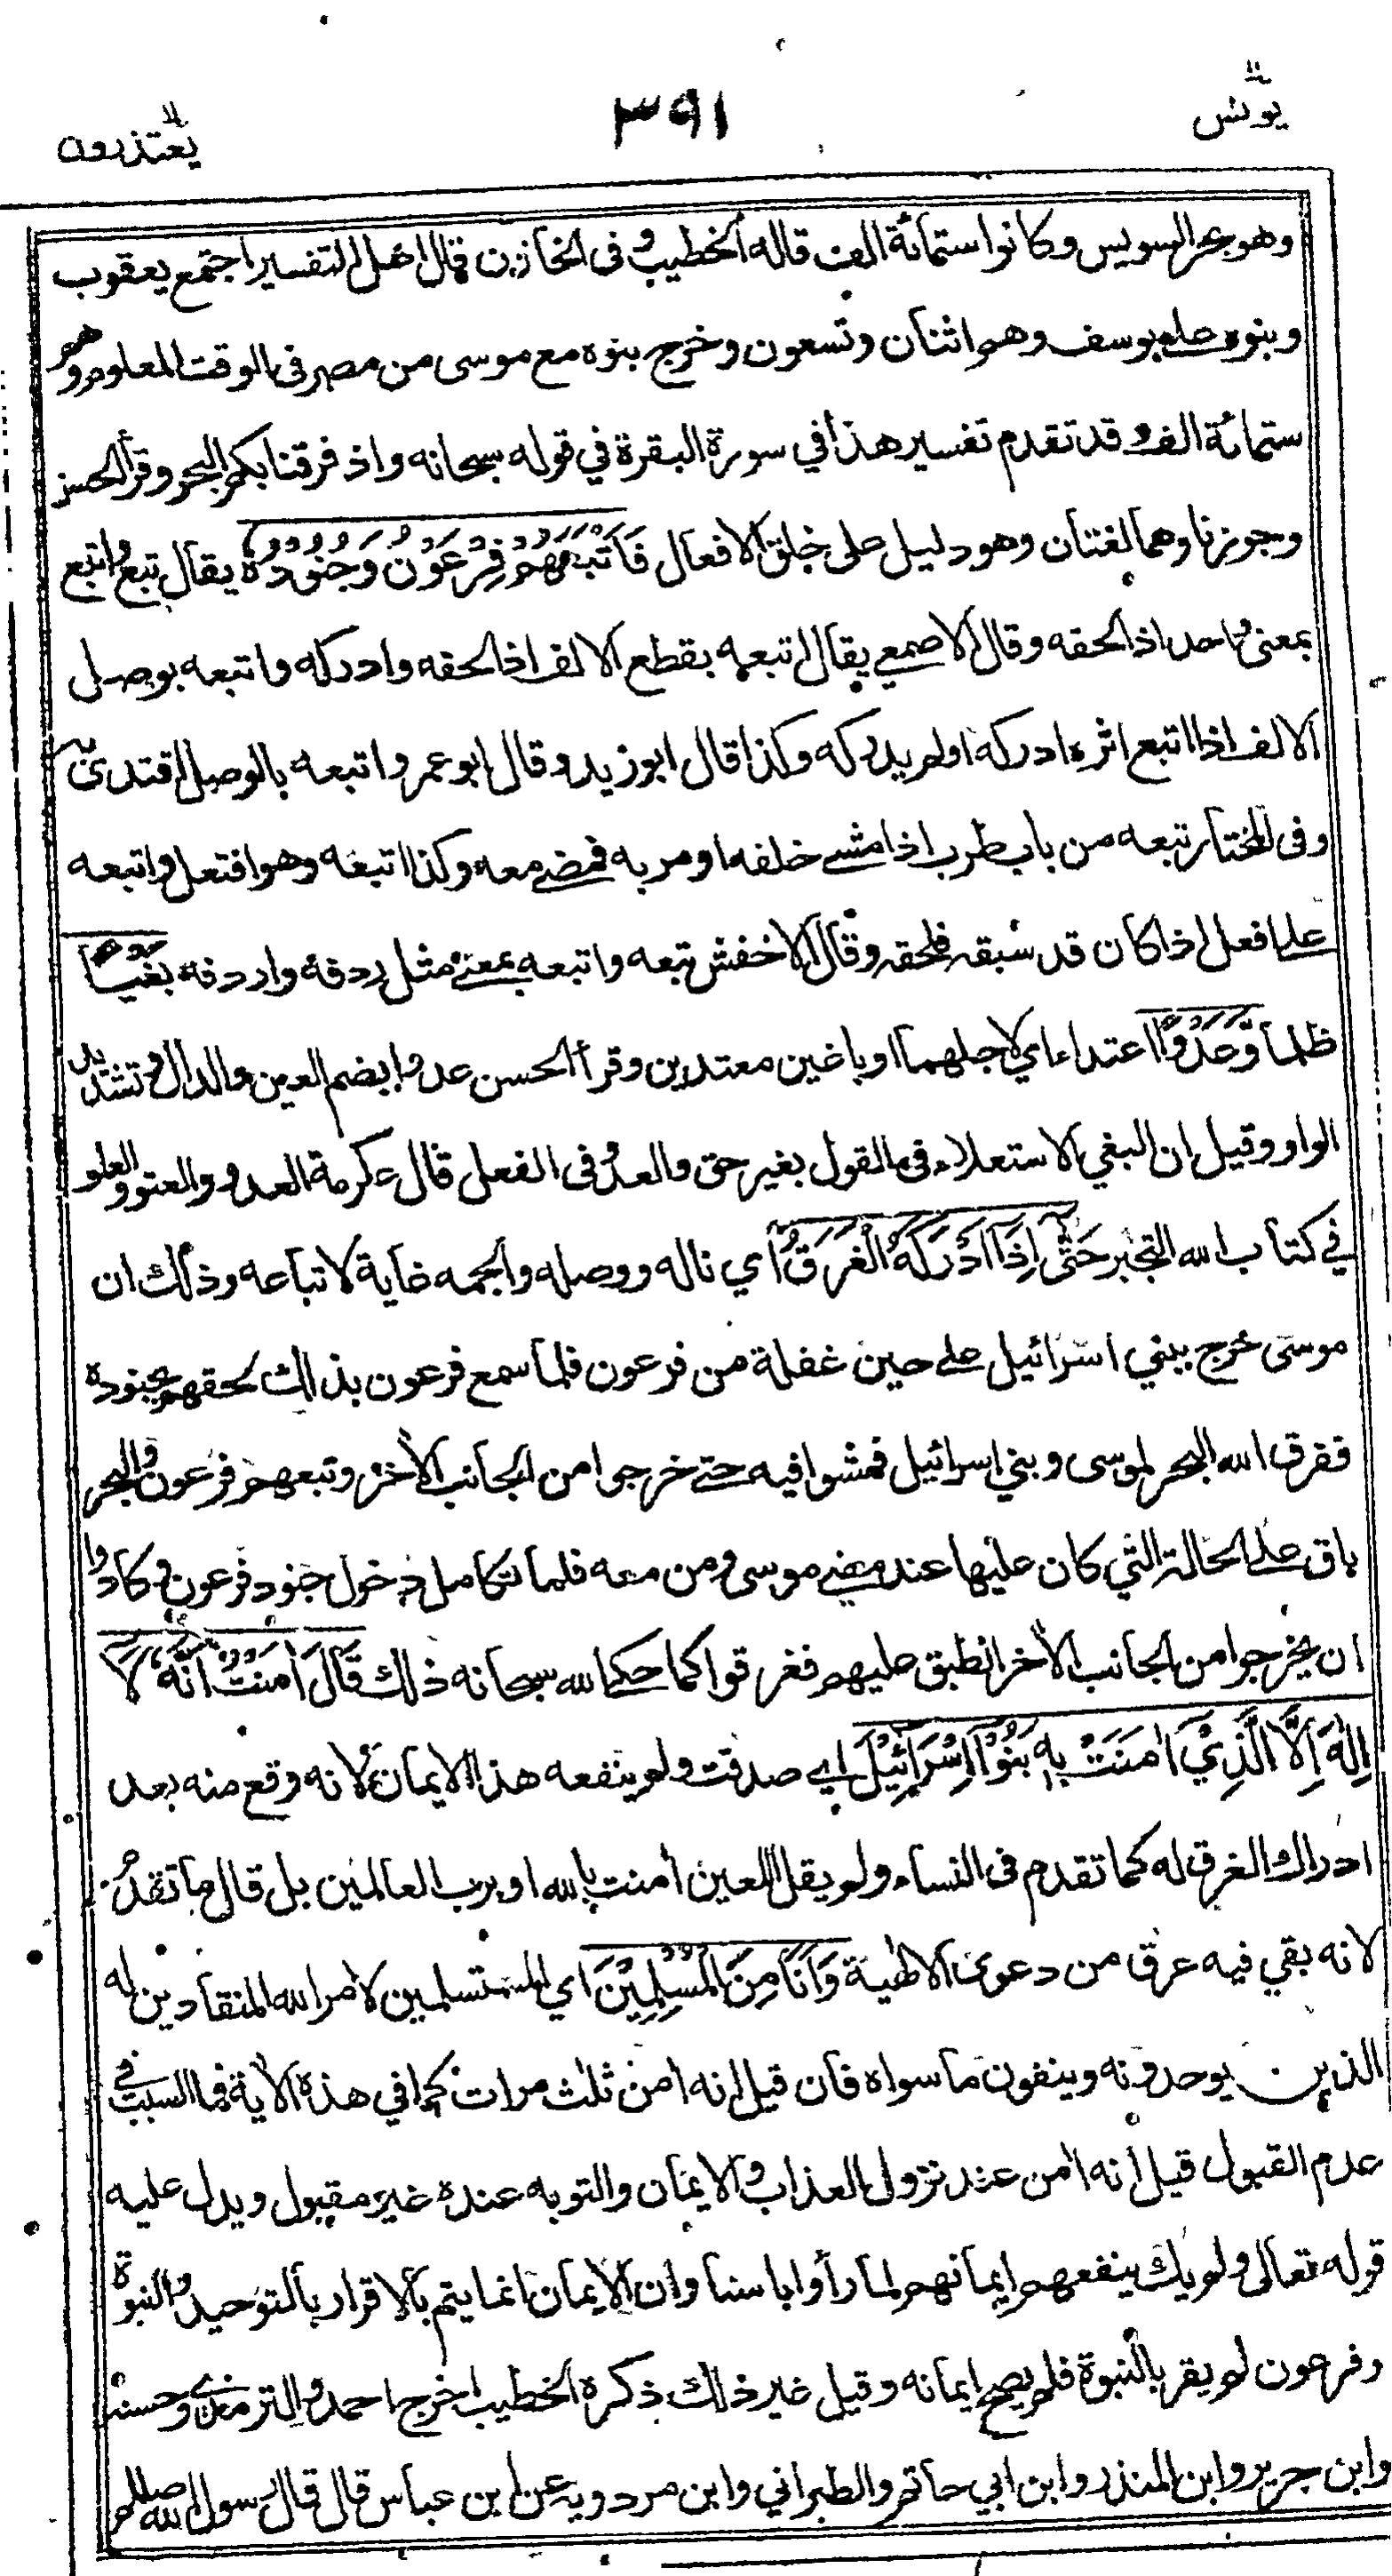 يونس
٣٩١
يعتذرون
وهو بحر السويس وكانوا ستمائة الف قاله الخطيب وفى الخازن قال اهل التفسير اجتمع يعقوب
وبنوه على يوسف وهم اثنان وتسعون وخرج بنوه مع موسى من مصر فى الوقت المعلوم وهم
ستمائة الف وقد تقدم تفسير هذا في سورة البقرة في قوله سبحانه واذ فرقنا بكم البحر وقرأ الحسن
وجوزنا وهما لغتان وهو دليل على خلق الافعال فَاَتْبَعَهُمْ فِرْعَوْنُ وَجُنُوْدُهٗ يقال تبع واتبع
بمعنى واحد اذا لحقه وقال الاصمعي يقال اتبعه بقطع الالف اذا لحقه وادركه واتبعه بوصل
الالف اذا اتبع اثره ادركه اولم يدركه وكذا قال ابو زيد وقال ابو عمرو اتبعه بالوصل اقتدى به
وفى المختار تبعه من باب طرب اذا مشى خلفه او مر به فمضى معه وكذا اتبعه وهو افتعل واتبعه
على افعل اذا كان قد سبقه فلحقه وقال الاخفش تبعه واتبعه بمعنى مثل ردفه واردفه بَغْيًا
ظلما وَّعَدْوًا اعتداء اي لاجلهما او باغين معتدين وقرأ الحسن عدوا بضم العين والدال وتشديد
الواو وقيل ان البغي الاستعلاء فى القول بغير حق والعدو فى الفعل قال عكرمة العدو والعتو والعلو
في كتاب الله التجبر حَتّٰى اِذَا اَدْرَكَهُ الْغَرَقُ اي ناله ووصله والجمه غاية لاتباعه وذلك ان
موسى خرج ببني اسرائيل على حين غفلة من فرعون فلما سمع فرعون بذلك لحقهم بجنوده
ففرق الله البحر لموسى وبني اسرائيل فمشوا فيه حتى خرجوا من الجانب الأخر وتبعهم فرعون والبحر
باق على الحالة التي كان عليها عند مضي موسى ومن معه فلما تكامل دخول جنود فرعون وكادوا
ان يخرجوا من الجانب الأخر انطبق عليهم فغرقوا كما حكى الله سبحانه ذلك قَالَ اٰمَنْتُ اَنَّهٗ لَا
اِلٰهَ اِلَّا الَّذِيْ اٰمَنَتْ بِهٖ بَنُوْا اِسْرَآئِيْلَ اي صدقت ولم ينفعه هذا الايمان لانه وقع منه بعد
ادراك الغرق له كما تقدم فى النساء ولم يقل اللعين أمنت بالله او برب العالمين بل قال ما تقدم
لانه بقي فيه عرق من دعوى الالهية وَاَنَا مِنَ الْمُسْلِمِيْنَ اي المستسلمين لامر الله المنقادين له
الذين يوحدونه وينفون ما سواه فان قيل انه امن ثلث مرات كما في هذه الأية فما السبب في
عدم القبول قيل انه أمن عند نزول العذاب والايمان والتوبه عنده غير مقبول ويدل عليه
قوله تعالى ولم يك ينفعهم ايمانهم لما رأوا باسنا وان الايمان انما يتم بالاقرار بالتوحيد والنبوة
وفرعون لم يقر بالنبوة فلم يصح ايمانه وقيل غير ذلك ذكره الخطيب اخرج احمد والترمذي وحسنه
وابن جرير وابن المنذر وابن ابي حاتم والطبراني وابن مردويه عن ابن عباس قال قال رسول الله صللم